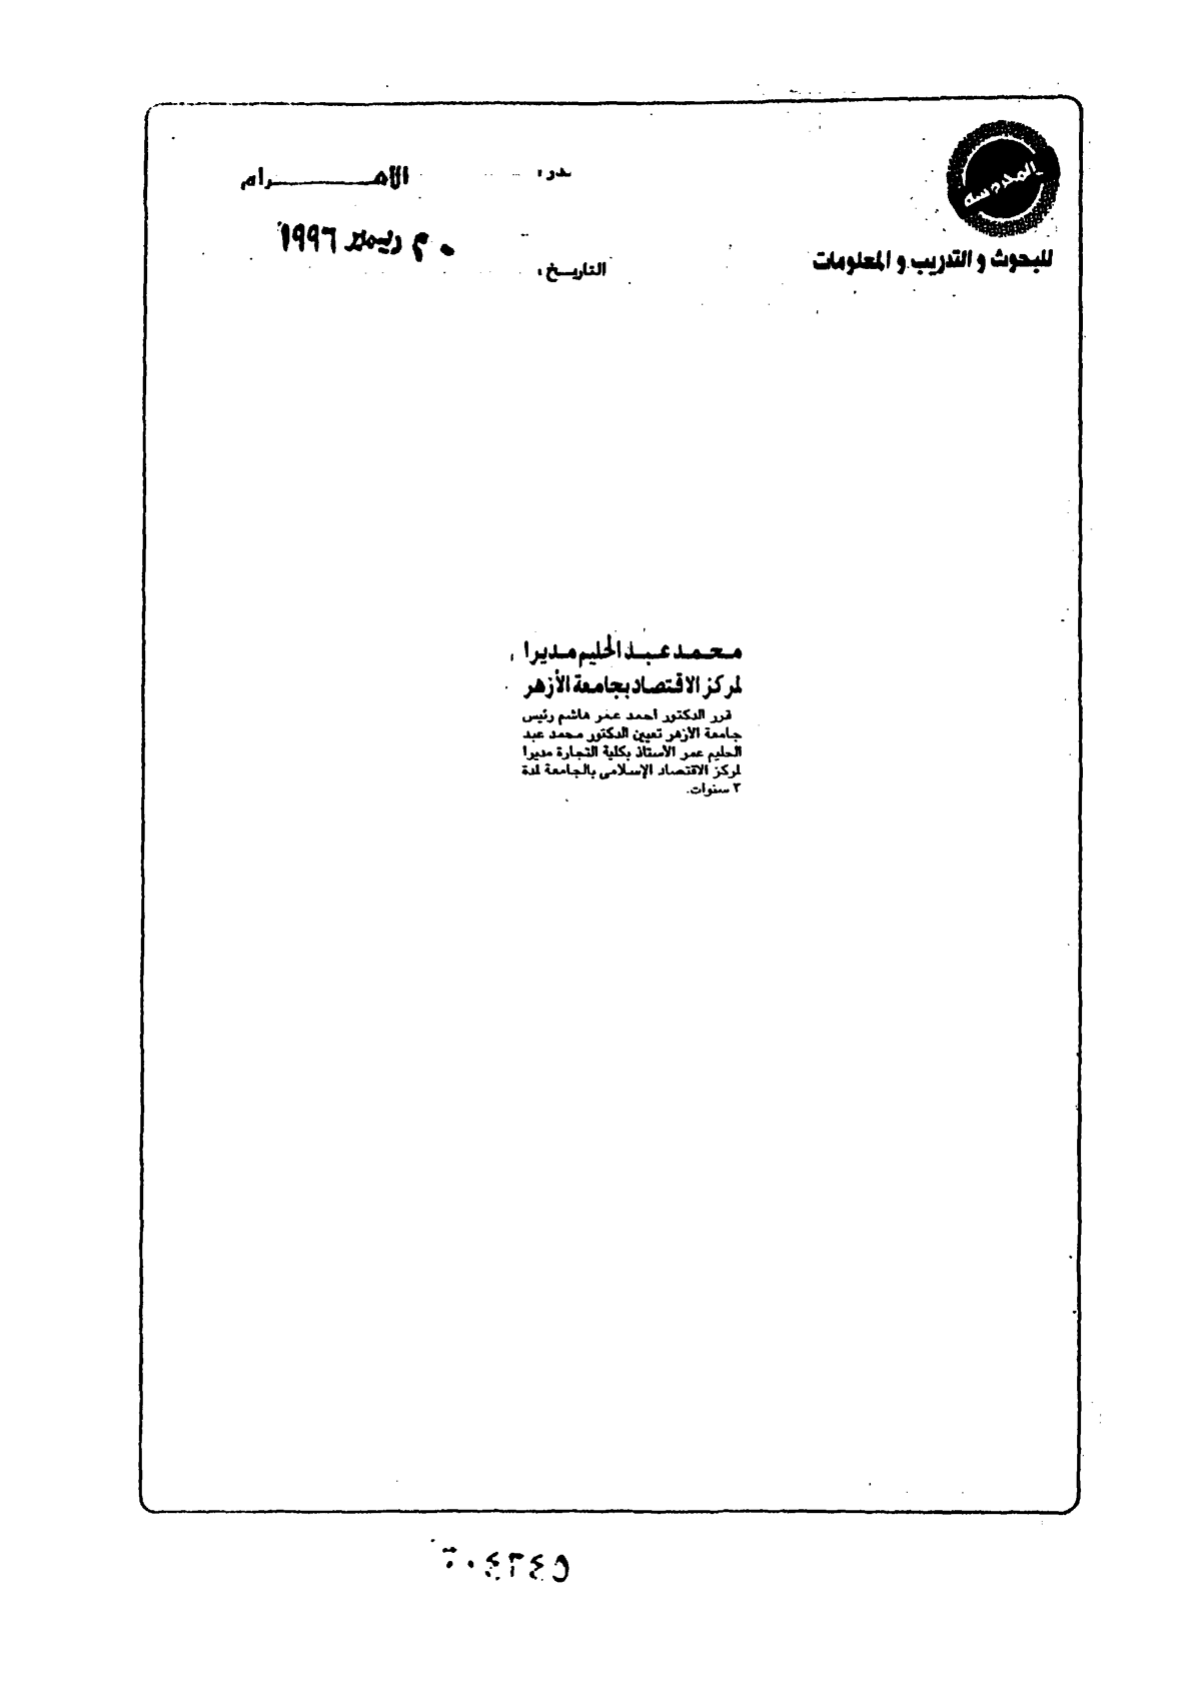 المحروسة
للبحوث و التدريب و المعلومات
الأهـــــــرام
ديسمبر ١٩٩٦
التاريخ :
محمد عبد الحليم مديرا
لمركز الاقتصاد بجامعة الأزهر
قرر الدكتور احمد عمر هاشم رئيس
جامعة الأزهر تعيين الدكتور محمد عبد
الحليم عمر الأستاذ بكلية التجارة مديرا
لمركز الاقتصاد الإسلامى بالجامعة لمدة
٣ سنوات.